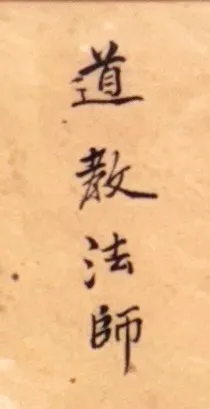 道教法師